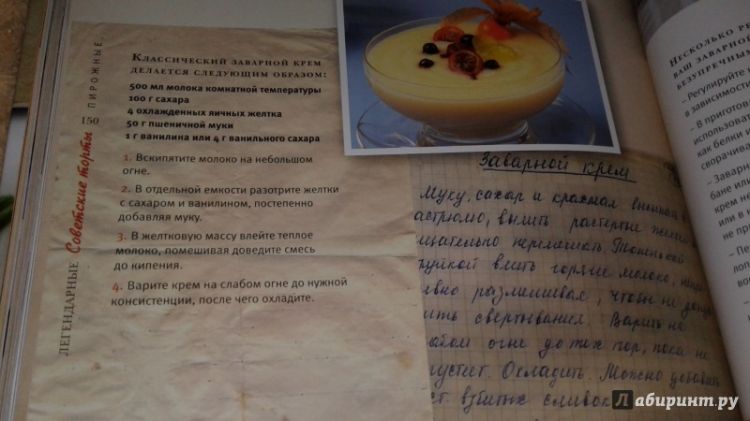 КЛАССИЧЕСКИЙ ЗАВАРНОЙ КРЕМ
ДЕЛАЕТСЯ СЛЕДУЮЩИМ ОБРАЗОМ:
500 мл молока комнатной температуры
100 г сахара
4 охлажденных яичных желтка
50 г пшеничной муки
1 г ванилина или 4 г ванильного сахара
1. Вскипятите молоко на небольшом
огне.
2. В отдельной емкости разотрите желтки
с сахаром и ванилином, постепенно
добавляя муку.
3. В желтковую массу влейте теплое
молоко, помешивая доведите смесь
до кипения.
4. Варите крем на слабом огне до нужной
консистенции, после чего охладите.
ЛЕГЕНДАРНЫЕ Советские торты 150 ПИРОЖНЫЕ
Заварной крем
Муку, сахар и крахмал
влить растертые
перемешать Тоненькой
влить горячее молоко,
размешивая, чтобы не
свертывания. Варить на
огне до тех пор, пока не
Охладить. Можно добавить
взбитых сливок
НЕСКОЛЬКО
ВАШ ЗАВАРНО
БЕЗУПРЕЧНЫ
– Регулируйте
в зависимости
– В приготов
использоват
как белки
сворачива
– Заварн
бане или
крем не
или в
не при
– По
лоп
вос
Лабиринт.ру